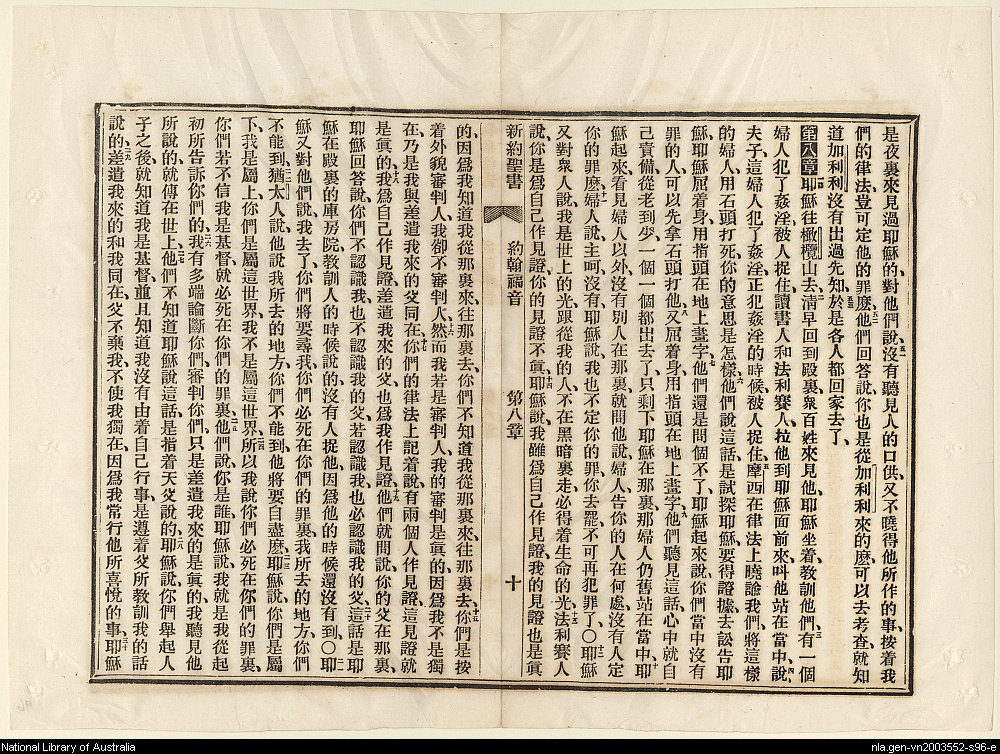 是夜裏來見過耶穌的、對他們說、沒有聽見人的口供、又不曉得他所作的事、按着我
們的律法、豈可定他的罪麼、他們回答說、你也是從加利利來的麼、可以去考查、就知
道加利利沒有出過先知、於是各人都回家去了、
第八章耶穌往橄欖山去、清早回到殿裏、衆百姓來見他、耶穌坐着教訓他們、有一個
婦人犯了姦淫、被人捉住、讀書人和法利賽人、拉他到耶穌面前來、叫他站在當中、說、
夫子、這婦人犯了姦淫、正犯姦淫的時候、被人捉住、摩西在律法上曉諭我們、將這樣
的婦人、用石頭打死、你的意思是怎樣、他們說這話、是試探耶穌、要得證據去訟告耶
穌、耶穌屈着身、用指頭在地上畫字、他們還是問個不了、耶穌起來說、你們當中沒有
罪的人、可以先拿石頭打他、又屈着身、用指頭在地上畫字、他們聽見這話、心中就自
己責備、從老到少、一個一個都出去了、只剩下耶穌在那裏、那婦人仍舊站在當中、
穌起來、看見婦人以外、沒有別人在那裏、就問他說、婦人、告你的人在何處、沒有人定
你的罪麼、婦人說、主呵、沒有、耶穌說、我也不定你的罪、你去罷、不可再犯罪了、〇耶穌
又對衆人說、我是世上的光、跟從我的人、不在黑暗裏走、必得着生命的光、法利賽人
說、你是爲自己作見證、你的見證不眞、耶穌說、我雖爲自己作見證、我的見證也是眞
新約聖書 約翰福音 第八章 十
的、因爲我知道我從那裏來、往那裏去、你們不知道我從那裏來、往那裏去、你們是按
着外貌審判人、我卻不審判人、然而我若是審判人、我的審判是眞的、因爲我不是獨
在、乃是我與差遣我來的父同在、你們的律法上記着說、有兩個人作見證、這見證就
是眞的、我爲自己作見證、差遣我來的父、也爲我作見證、他們就問說、你的父在那裏、
耶穌回答說、你們不認識我、也不認識我的父、若認識我、也必認識我的父、這話是耶
穌在殿裏的庫房院教訓人的時候說的、沒有人捉他、因爲他的時候還沒有到、〇耶
穌又對他們說、我去了、你們將要尋我、你們必死在你們的罪裏、我所去的地方、你們
不能到、猶太人說、他說我所去的地方、你們不能到、他將要自盡麼、耶穌說、你們是屬
下、我是屬上、你們是屬這世界、我不是屬這世界、所以我說、你們必死在你們的罪裏、
你們若不信我是基督、就必死在你們的罪裏、他們說、你是誰、耶穌說、我就是我從起
初所告訴你們的、我有多端論斷你們、審判你們、只是差遣我來的是眞的、我聽見他
所說的、就傳在世上、他們不知道耶穌說這話是指着天父說的、耶穌說、你們舉起人
子之後、就知道我是基督、並且知道我沒有由着自己行事、是遵着父所教訓我的話
說的、差遣我來的和我同在、父不棄我、不使我獨在、因爲我常行他所喜悅的事、耶穌
National Library of Australia
nla.gen-vn2003552-s96-e